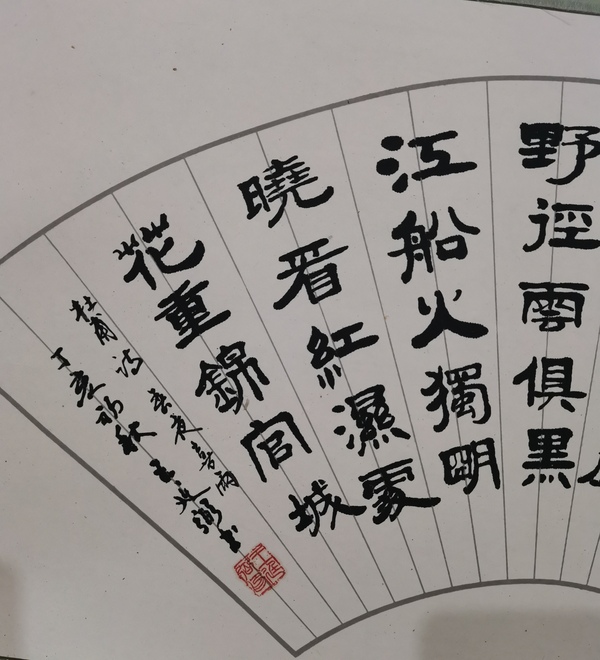 野徑雲俱黑
江船火獨明
曉看紅濕處
花重錦官城
杜甫诗 春夜喜雨
丁亥初秋 王延书